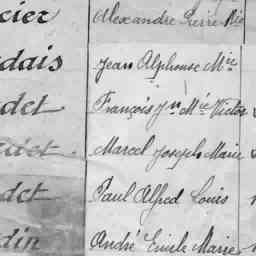 cier Alexandre Pierre Mie
dais Jean Alphonse Mie
det François Jn Mie Victor
det Marcel Joseph Marie
det Paul Alfred Louis
din André Emile Marie